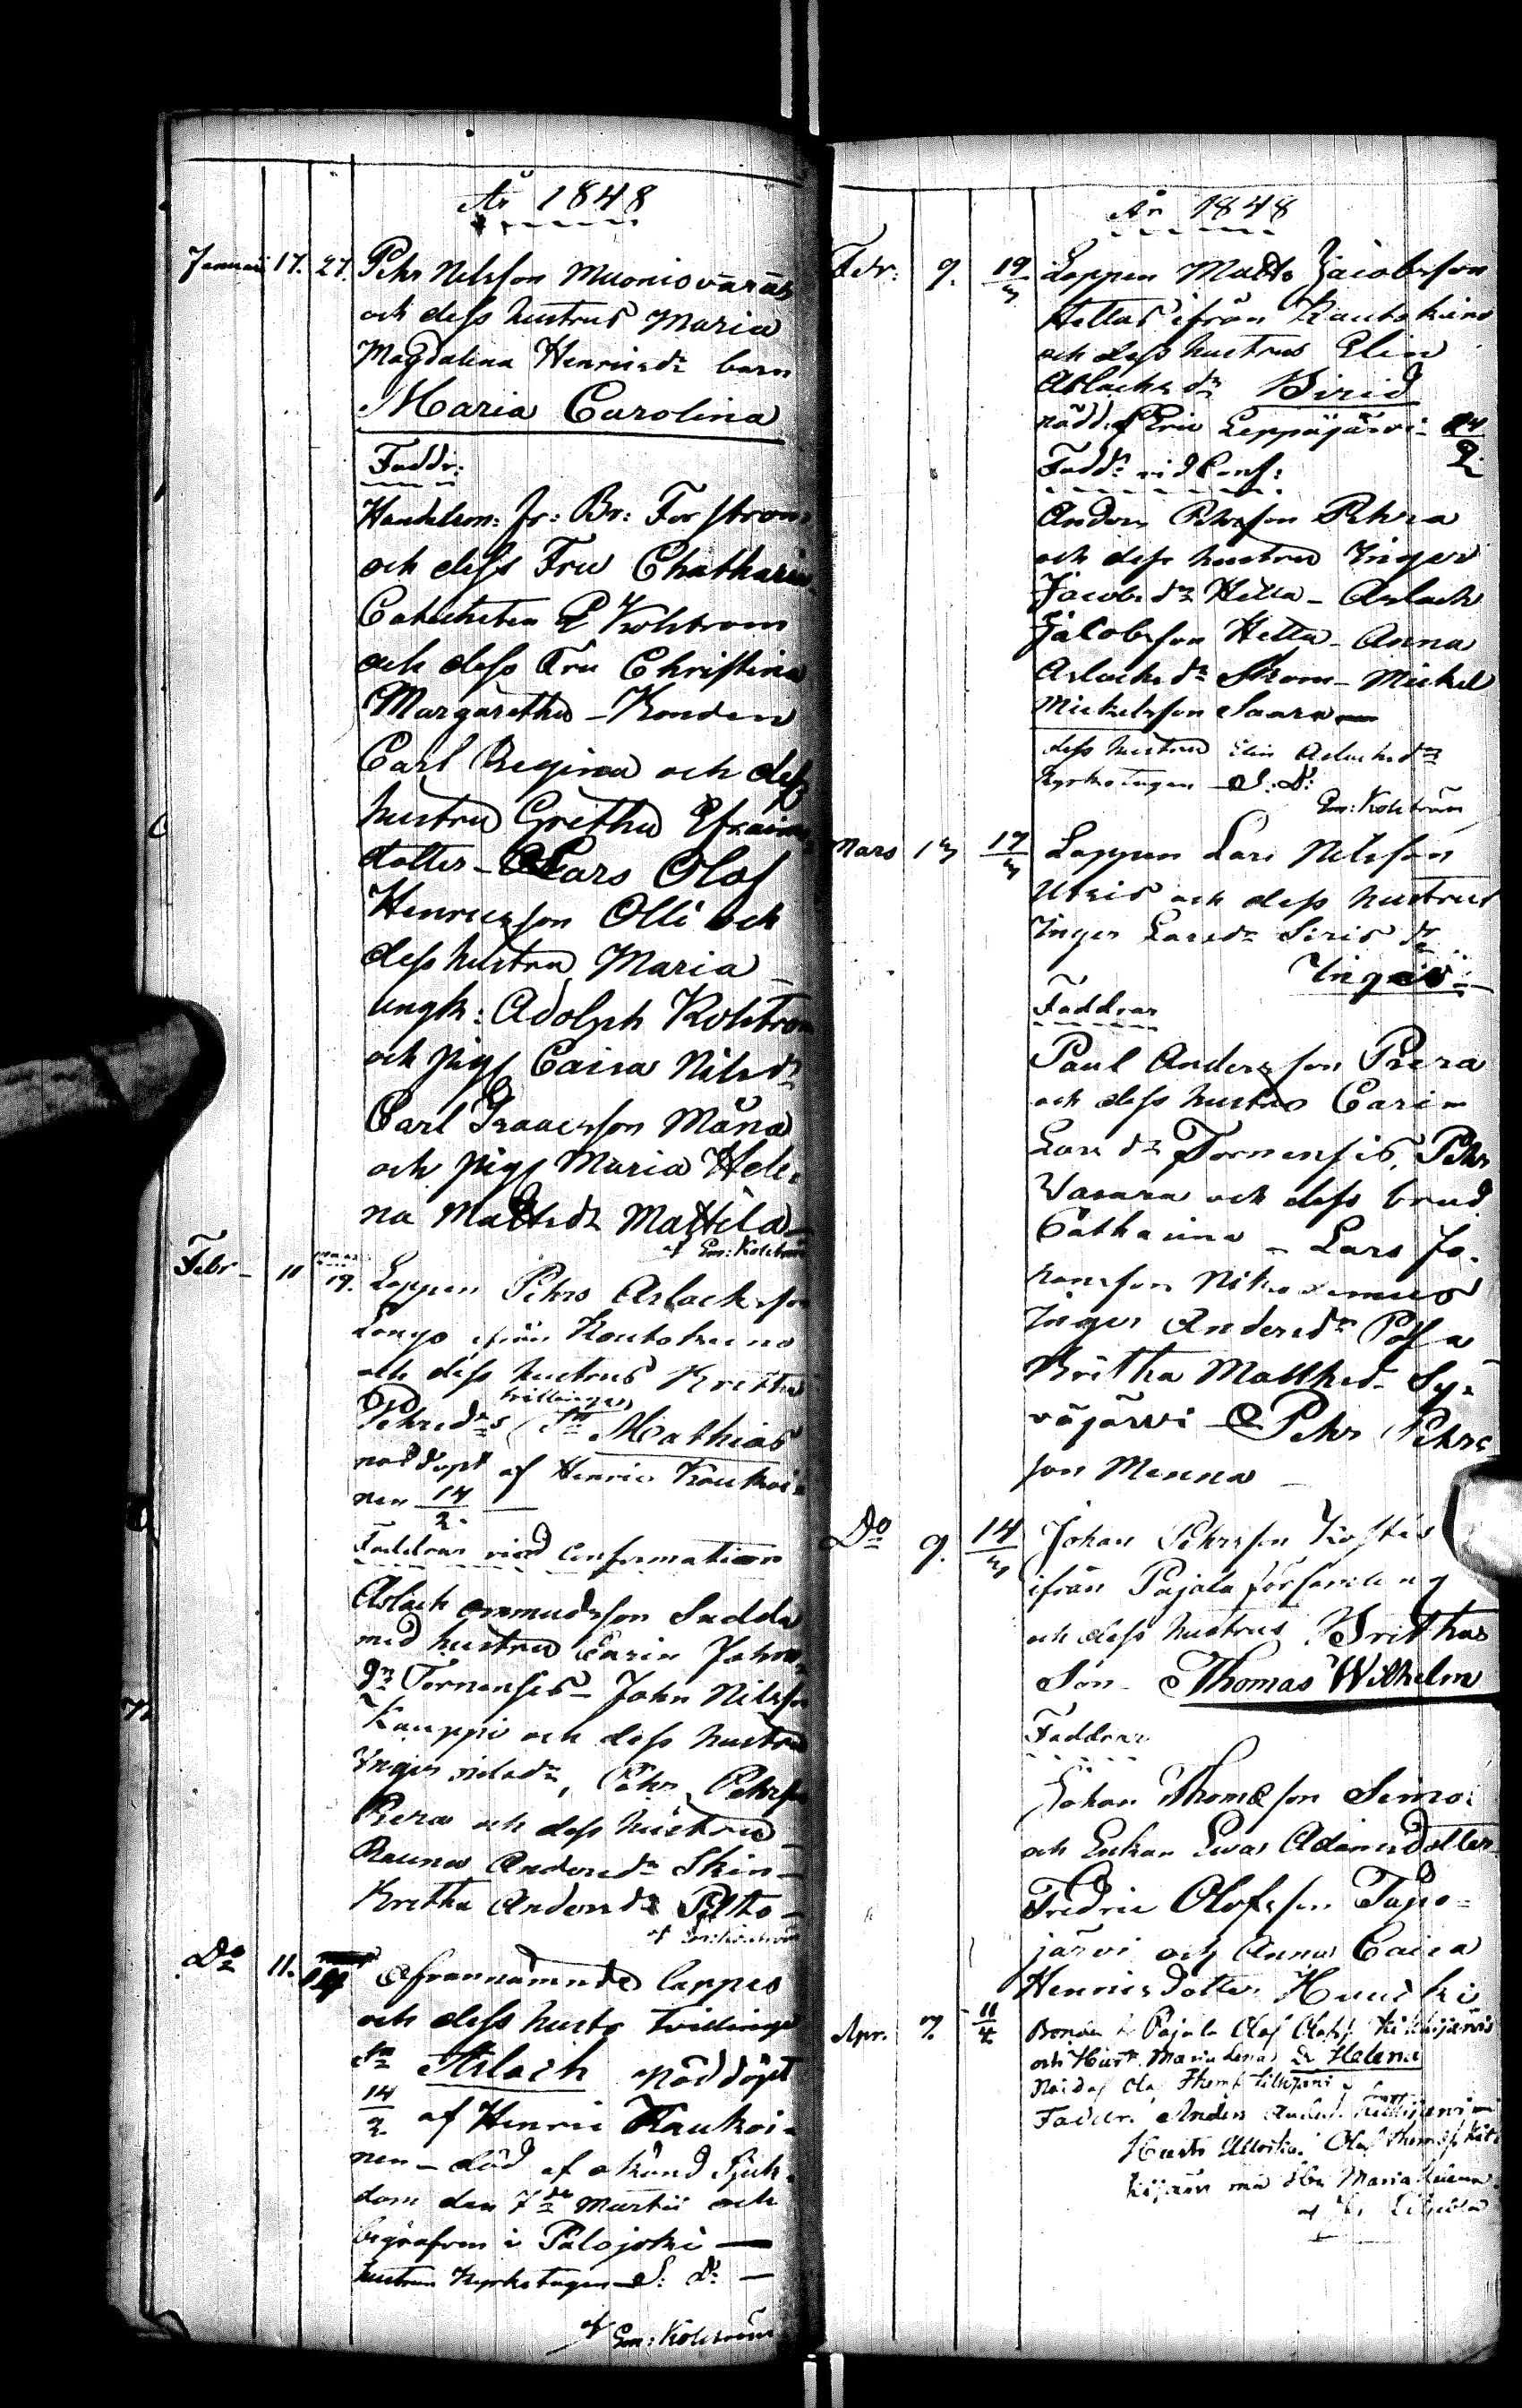 År 1848
Januari 17. 27. Pehr Nilsson Muoniovaara
och dess hustrus Maria
Magdalena Henricsdr barn
Maria Carolina
Faddr:
Handelsm: Jr: Br: Forström
och dess Fru Chatharin
Catecheten P Kolström
och dess Fru Christina
Margaretha – Bonden
Carl Regina och dess
hustru Gretha Efraims
dotter – Lars Olof
Henricsson Olli och
dess hustru Maria –
ungk: Adolph Kolström
och pig Caisa Nilsdr
Carl Isaacsson Måna
och pig Maria Hele
na Mattsdr Mattila –
af Em: Kolström
Febr – 11 19. Lappen Pehrs Aslacksson
Longo ifrån Koutokeino
och dess hustrus Kretha
trillingar
Pehrsdrs Sn Mathias
nöddopt af Henric Koukoi
nen 14/2. —
Faddrar vid Confirmation
Aslack Ommudsson Sadda
med hustru Carin Johns
dr Tornensis – John Nilsson
Kauppi och dess hustru
Inger nilsdr, Pehr Pehrsson
Piera och dess hustru –
Rauna Andersdr Skin –
Kretha Andersdr Pelto –
af Em: Kolström
Do 11. 19 Ofvannämnde lappes
och dess hustr trillinge
Sn Aslach nöddöpt
14/2 af Henric Kaukoi
nen – död af okänd sjuk
dom den 7de Martii och
begrafven i Palojoki —
hustrun Kyrkotagen S: D: —
af Em: Kolström
År 1848
Febr: 9. 19/3 Lappen Matts Jacobsson
Hettas ifrån Kautokeino
och dess hustrus Elin
Aslacksdr Birid
nödd. af Eric Leppäjärvi 24/2
Fadd: vid Conf:
Anders Pehrsson Pehra
och dess hustru Inger
Jacobsdr Hetta – Aslack
Jacobsson Hetta – Anna
Aslacksdr Skom – Mickel
Mickelsson Saara —
dess hustru Elin Aslacksdr
Kyrkotagen S: D:
Em: Kolström
Mars 13 17/3 Lappen Lars Nilsson
Utsis och dess hustrus
Inger Larsdr Siris dr
Inga
Faddrar
Paul Andersson Piera
och dess hustru Carin
Larsdr Tornensis, Pehr
Vasara och dess brud
Catharina – Lars Jo
hansson Nikodemus
Inger Andersdr
Britha Matthsd. Sy
väjärvi – Pehr Pehrs
son Menna –
Do 9. 14/3 Johan Pehrsson Kostis
ifrån Pajala församling
och dess hustrus Brithas
Son – Thomas Wilhelm
Faddrar
Johan Thomasson Simo
och Enkan Ewa Adamsdotter
Fredric Olofsson Tapo
järvi och Anna Caisa
Henricsdotter Huuski
Apr. 7. 11/4 Bonden fr Pajala Olof Olofss Kitkijärvis
och Hust. Maria Lenas Dr Helena
Nöddöpt Olof Thoms
Faddr. Anders Kitkijärvi m
Hustr Olof Thomss Kit
kijärvi med Hu Maria